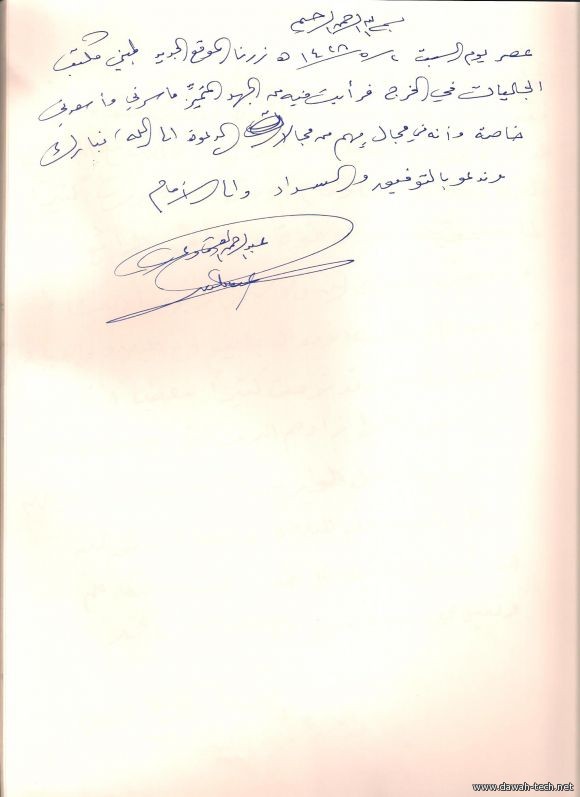 بسم الله الرحمن الرحيم
عصر يوم السبت ٢/٥/١٤٢٨ هـ زرنا الموقع الجديد لمبنى مكتب
الجاليات في الخرج فرأيت فيه من الجهد المميز ما سرني وأسعدني
خاصة وأنه في مجال مهم من مجالات الدعوة الى الله، نبارك
وندعو بالتوفيق والسداد والى الأمام
عبد الرحمن
www.dawah-tech.net